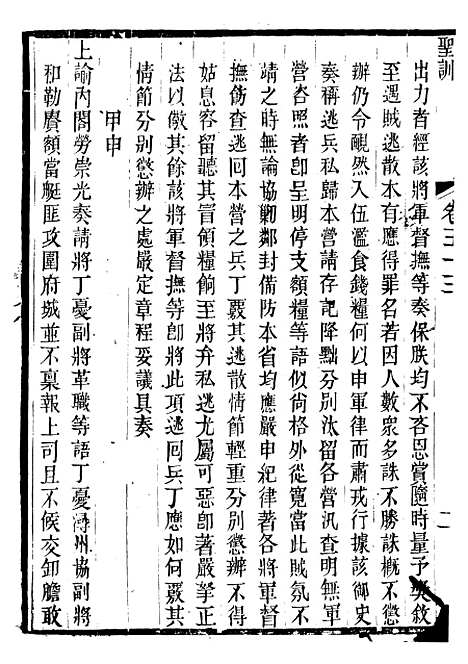 聖訓
卷三十三
二
出力者經該將軍督撫等奏保朕均不吝恩賞隨時量予奬敘
至遇賊逃散本有應得罪名若因人數衆多誅不勝誅槪不懲
辦仍令靦然入伍濫食錢糧何以申軍律而肅戎行據該御史
奏稱逃兵私歸本營請存記降黜分别汰留各營汛查明無軍
營咨照者卽呈明停支額糧等語似尚格外從寬當此賊氛不
靖之時無論協勦鄰封備防本省均應嚴申紀律著各將軍督
撫飭查逃回本營之兵丁覈其逃散情節輕重分别懲辦不得
姑息容留聽其冒領糧餉至將弁私逃尤屬可惡卽著嚴拏正
法以儆其餘該將軍督撫等卽將此項逃回兵丁應如何覈其
情節分别懲辦之處嚴定章程妥議具奏
甲申
上諭內閣勞崇光奏請將丁憂副將革職等語丁憂潯州協副將
和勒賡額當艇匪攻圍府城並不稟報上司且不候交卸膽敢